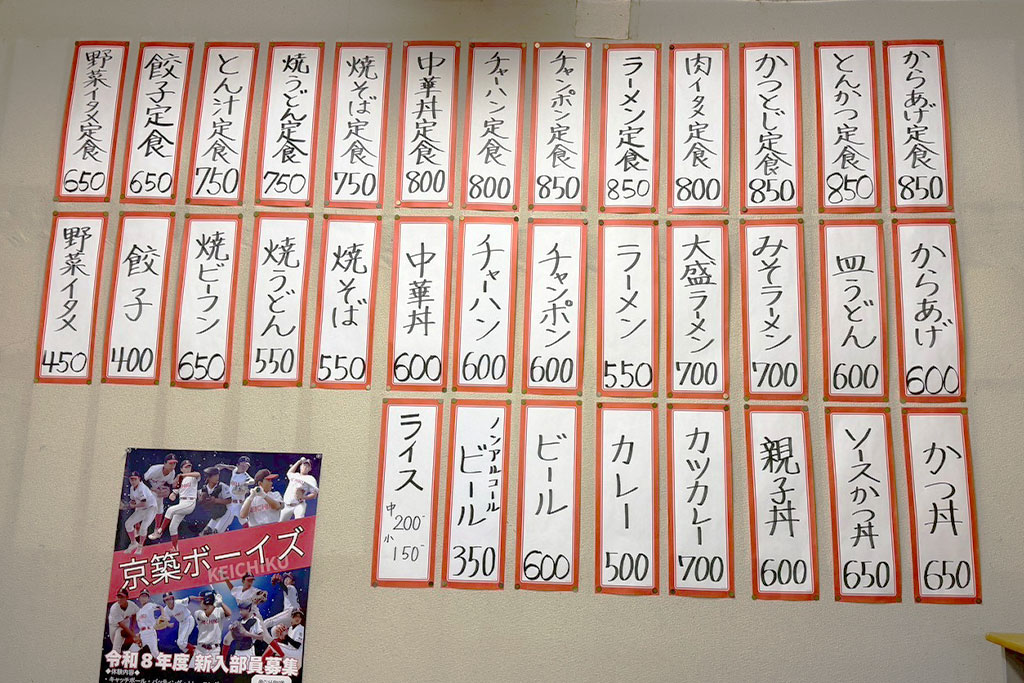 からあげ定食
850
とんかつ定食
850
かつとじ定食
850
肉イタメ定食
800
ラーメン定食
850
チャンポン定食
850
チャーハン定食
800
中華丼定食
800
焼そば定食
750
焼うどん定食
750
とん汁定食
750
餃子定食
650
野菜イタメ定食
650
からあげ
600
皿うどん
600
みそラーメン
700
大盛ラーメン
700
ラーメン
550
チャンポン
600
チャーハン
600
中華丼
600
焼そば
550
焼うどん
550
焼ビーフン
650
餃子
400
野菜イタメ
450
かつ丼
650
ソースかつ丼
650
親子丼
600
カツカレー
700
カレー
500
ビール
600
ノンアルコール
ビール
350
ライス
中200-
小150-
京築ボーイズ
KEICHIKU
令和8年度 新入部員募集
◆体験内容◆